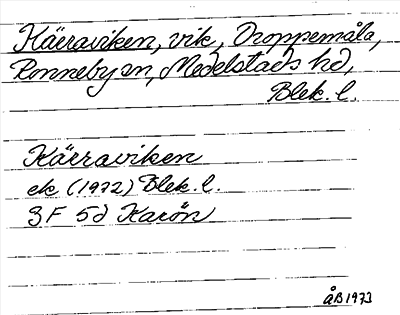 Käraviken, vik, Droppemåla,
Ronneby sn, Medelstads hd,
Blek. l.
Käraviken
ek (1972) Blek. l.
3F 5d Karön
ÅB 1973